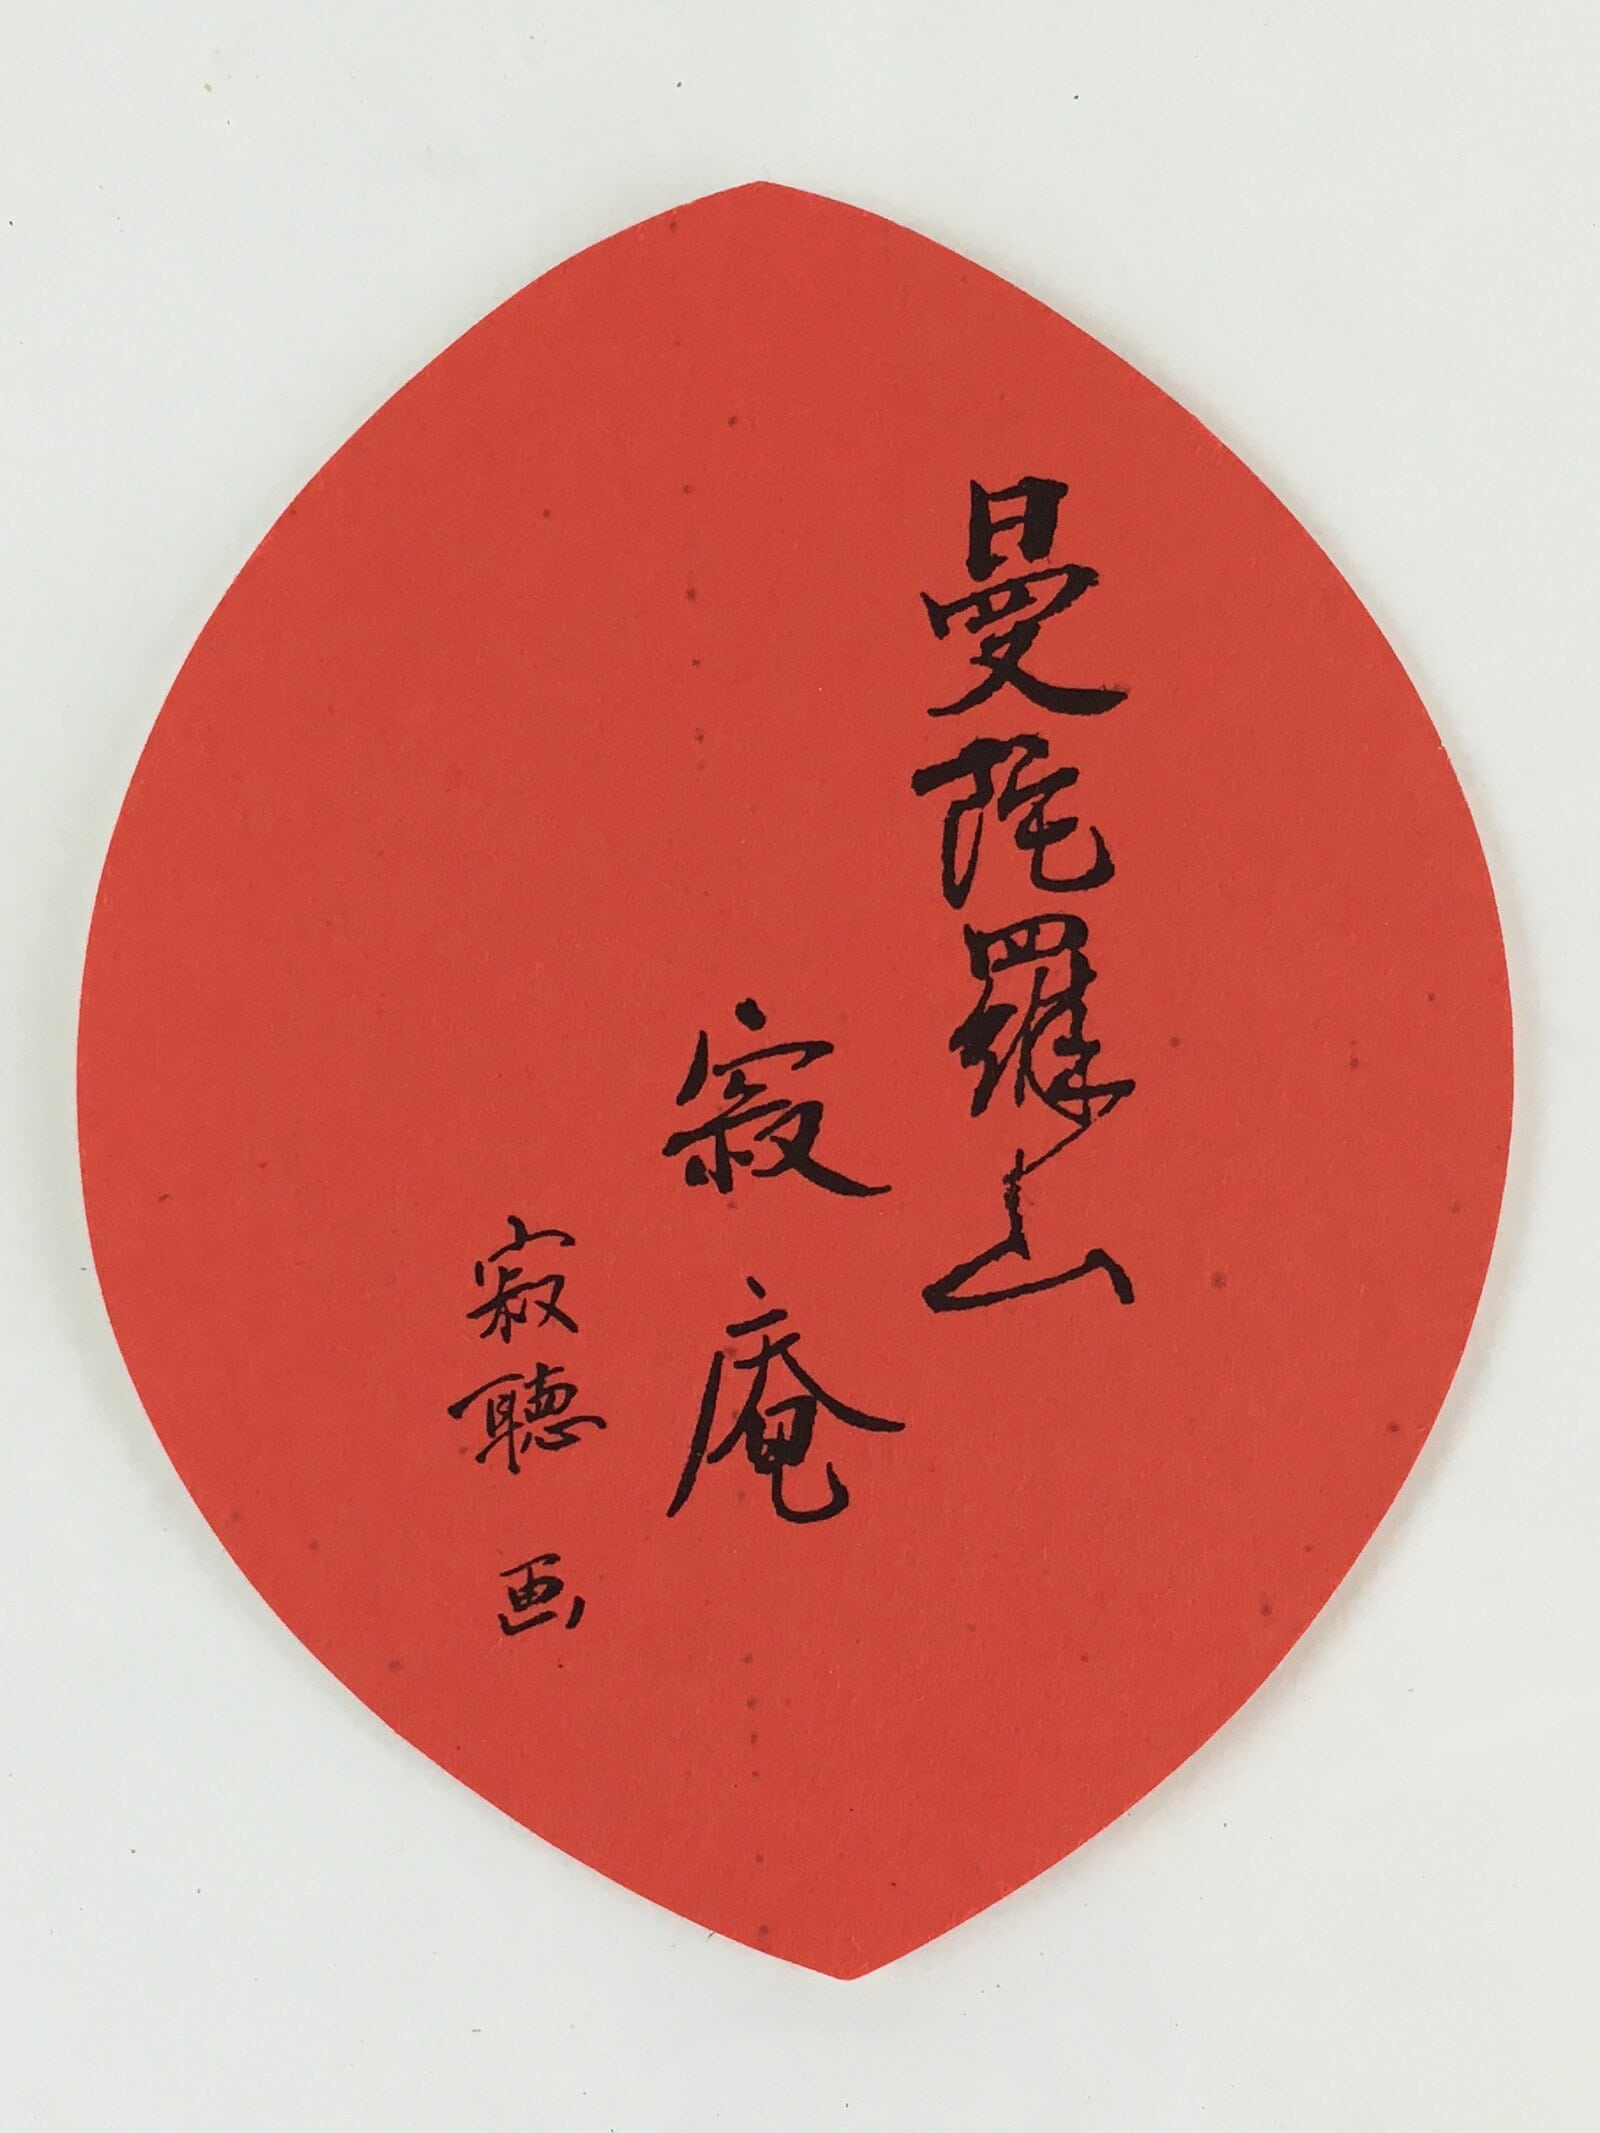 曼陀羅山
寂庵
寂聴画